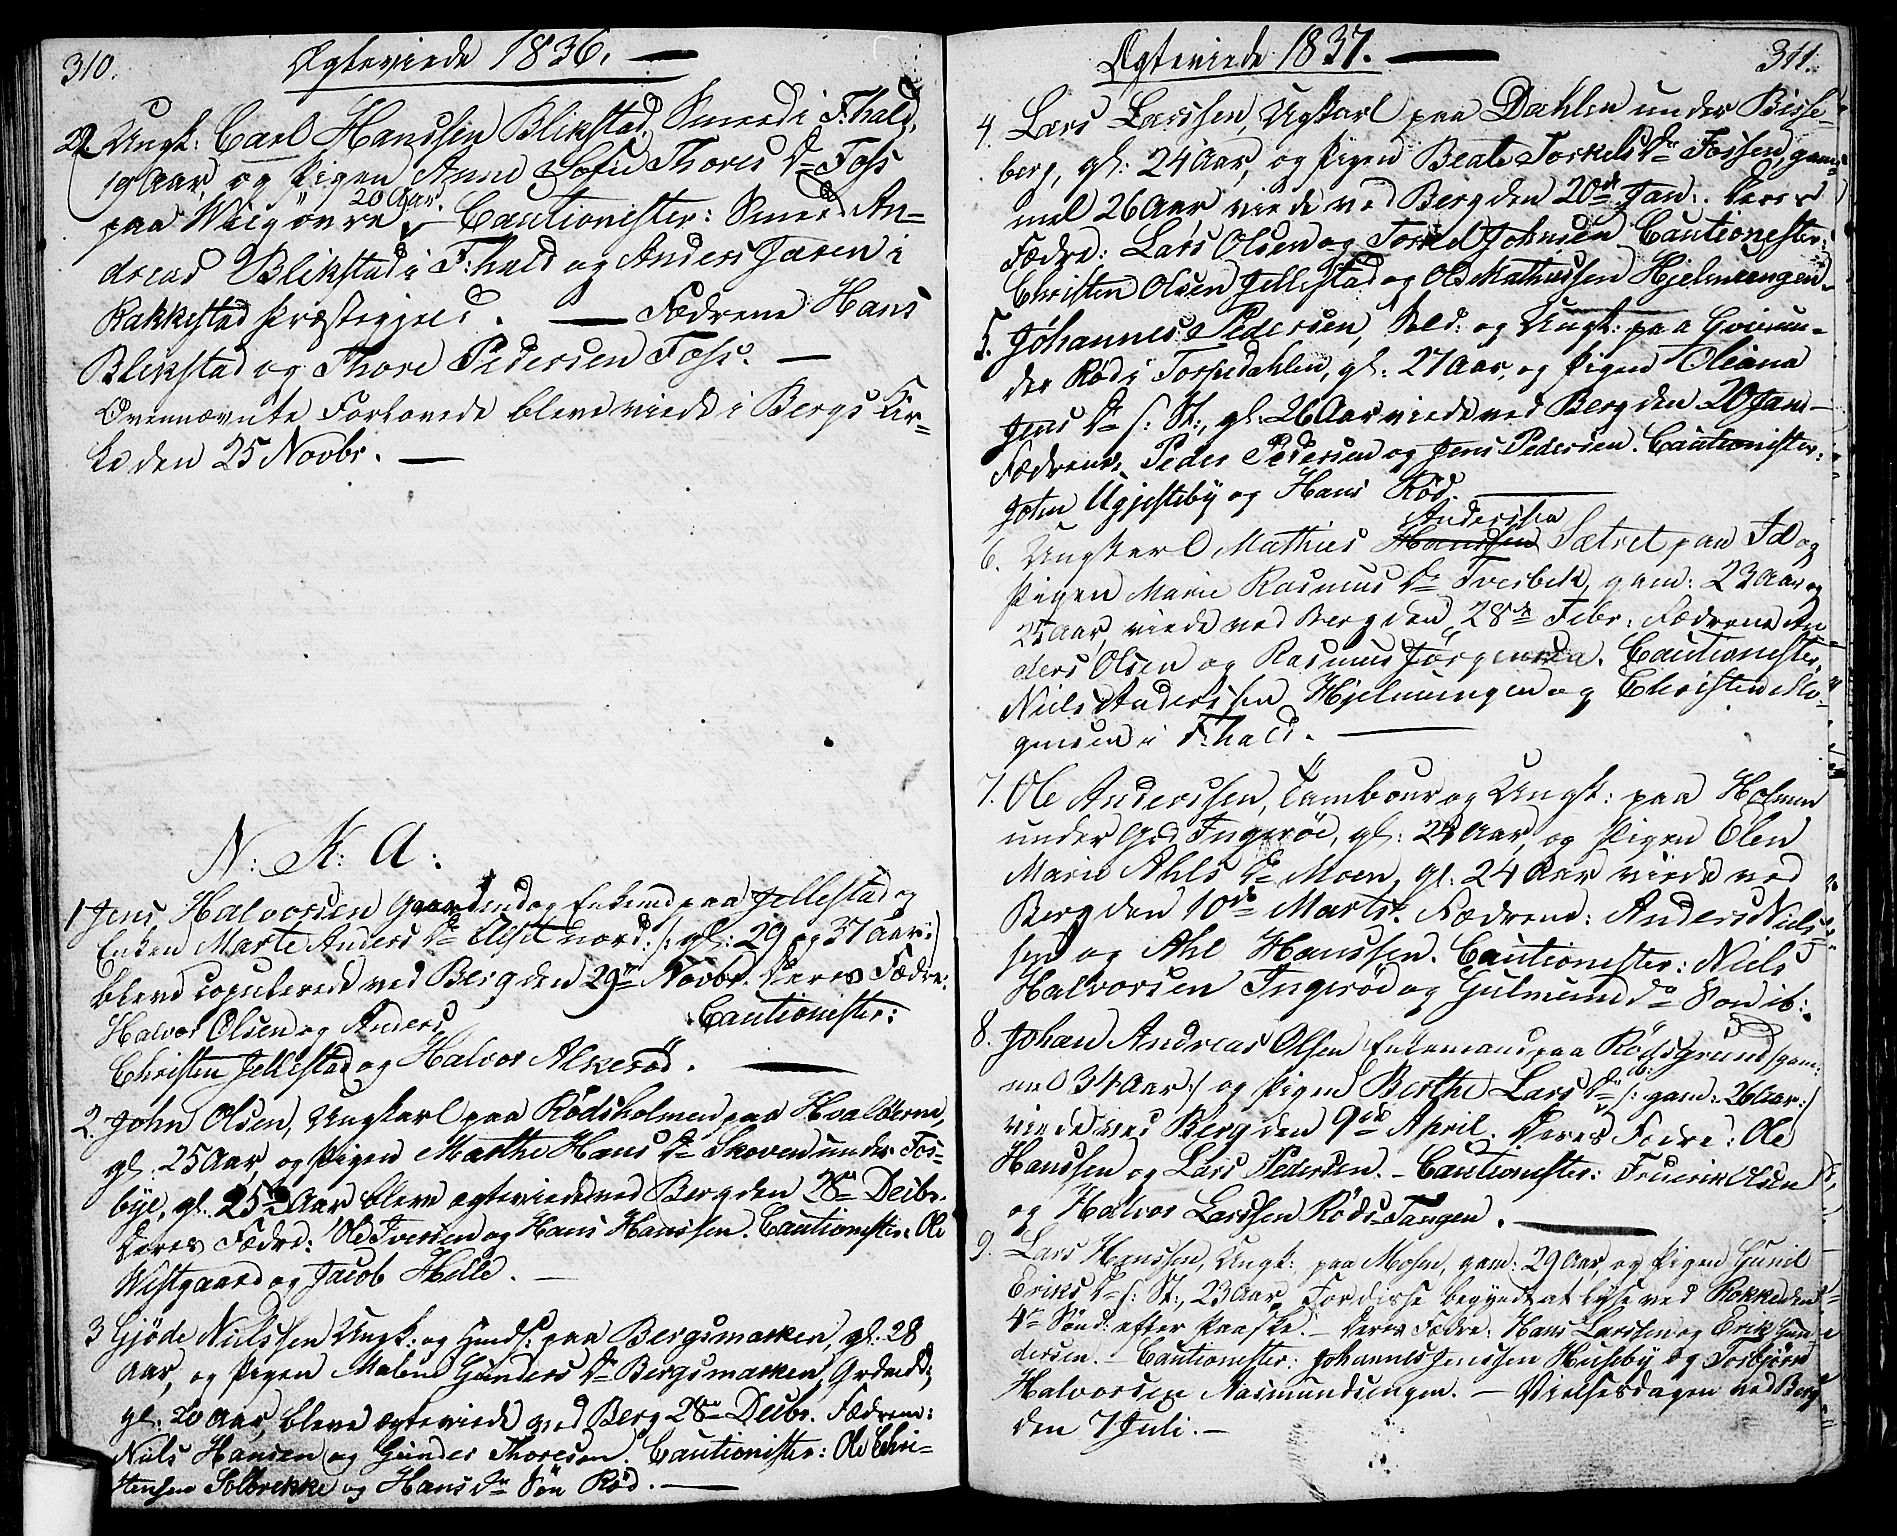 310.
Ægteviede 1836. —
22 Ungk: Carl Hanssen Blikstad, Smed i F:hald,
19 Aar, og Pigen Anne Sofie Thores Dr Foss
20 Aar.
paa Cautionister: Smed An-
dreas Blikstad i F:hald og Anders i
Rakkestad Præstegjeld. — Fædrene Hans
Blikstad og Thore Pedersen Foss. —
Ovennævnte Forlovede bleve viede i Bergs Kir-
ke den 25 Novbr. —
N: K: A:
1 Jens Halvorsen Gaardmd og Enkemd paa Jellestad og
Enken Marte Anders Dr nord: /: gl: 29 og 37 Aar :/
bleve copulerede ved Berg den 29de Novbr. Deres Fædre:
Halvor Olsen og Anders
Cautionister:
Christen Jellestad og Halvor Akkerød. —
2. John Olsen, Ungkarl paa Rødsholmen paa Hvalöerne,
gl. 25 Aar, og Pigen Marthe Hans Dr Skoven under Fos-
bye, gl. 25 Aar bleve egteviede ved Berg den 28de Decbr.
Deres Fædre: Ole Iversen og Hans Hanssen. Cautionister: Ole
Westgaard og Jacob Helle. —
3 Gjöde Nielssen Ungk. og paa Bergsmarken, gl. 28
Aar, og Pigen Malene Gunders Dr Bergsmarken,
gl. 20 Aar, bleve ægteviede ved Berg 28de Decbr. Fædrene:
Niels Hansen og Gunder Thoresen. Cautionister: Ole Chri-
stensen Solbrekke og Hans Dr Søn Rød. —
311.
Ægteviede 1837. —
4. Lars Larssen, Ugkarl paa Dahlen under Bisse-
berg, gl: 24 Aar, og Pigen Beate Torkels Dr Fossen, gam-
mel 26 Aar viede ved Berg den 20de Jan:. Deres
Fædre: Lars Olsen og Torkel Johnsen Cautionister:
Christen Olsen Jellestad og Ole Mathissen Hjelmungen.
5. Johannes Pedersen, Sold: og Ungk: paa
der Röd i Torpedahlen, gl: 27 Aar, og Pigen Oliana
Jens Dr s: St:, gl: 26 Aar viede ved Berg den 20 Jan:
Fædrene: Peder Pedersen og Jens Pedersen. Cautionister:
John Ugjesteby og Hans Röd. —
Anderssen
6. Ungkarl Mathies Hanssen Sætret paa Id og
Pigen Marie Rasmus Dr Tvesbek, gam: 23 Aar og
25 Aar, viede ved Berg den 28de Febr: Fædrene An-
ders Olsen og Rasmus Jörgensen. Cautionister,
Niels Anderssen Hjelmungen og Christen Mo-
gensen i F:hald. —
7. Ole Anderssen, Tambour og Ungk: paa Holmen
under Gd Ingeröe, gl: 24 Aar, og Pigen Elen
Marie Ahls Dr Moen, gl: 24 Aar viede ved
Berg den 10de Marts. Fædrene: Anders Niels-
sen og Ahl Hanssen. Cautionister: Niels
Halvorsen Ingeröe og Gulmund Do Von ib:.
8. Johan Andreas Olsen Enkemand paa Rödsgrund /: gam-
mel 34 Aar :/ og Pigen Berthe Lars Dr ib: /: gam: 26 Aar :/
viede ved Berg den 9de April. Deres Fædre: Ole
Hanssen og Lars Pedersen. — Cautionister: Frederik Olsen
og Halvor Larssen Röds-Tangen. —
9. Lars Hanssen, Ungk: paa Mosen, gam: 29 Aar, og Pigen Gunil
Eriks Dr s: St:, 23 Aar, For disse begyndt at lyse ved Rokke den
4de Sönd: efter Paaske. — Deres Fædre: Hans Larssen og Erik Gun-
dersen. — Cautionister: Johannes Jenssen Huseby og Torbjörn
Halvorsen Aasmundrungen. — Vielsesdagen ved Berg
den 7 Juli. —